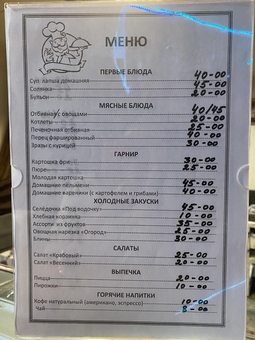 МЕНЮ
ПЕРВЫЕ БЛЮДА
Суп лапша домашняя 40-00
Солянка 45-00
Бульон 20-00
МЯСНЫЕ БЛЮДА
Отбивная с овощами 40/45
Котлеты 20-00
Печеночная отбивная 25-00
Перец фаршированный 40-00
Зразы с курицей 30-00
ГАРНИР
Картошка фри 30-00
Пюре 25-00
Молодая картошка
Домашние пельмени 45-00
Домашние вареники (с картофелем и грибами) 40-00
ХОЛОДНЫЕ ЗАКУСКИ
Селёдочка «Под водочку» 45-00
Хлебная корзинка 10-00
Ассорти из фруктов 35-00
Овощная нарезка «Огород» 25-00
Блины 30-00
САЛАТЫ
Салат «Крабовый» 25-00
Салат «Весенний» 20-00
ВЫПЕЧКА
Пицца 20-00
Пирожки 10-00
ГОРЯЧИЕ НАПИТКИ
Кофе натуральный (американо, эспрессо) 10-00
Чай 8-00